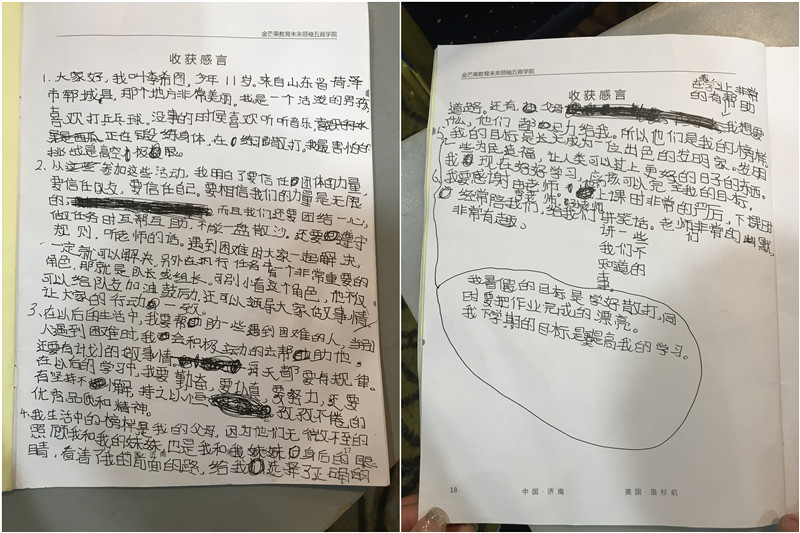 金芒果教育未来领袖五商学院
收获感言
1、大家好，我叫李希图，今年11岁，来自山东省荷泽
市郓城县，那个地方非常美丽。我是一个活泼的男孩，
喜欢打乒乓球。没事的时候喜欢听听音乐，喜欢的水
果是西瓜，正在锻练身体，在练习散打，我最害怕的
挑战是高空极限。
2、从这些参加这些活动，我明白了要信任团体的力量，
要信任队友，要信任自己。要相信我们的力量是无限
的，而且我们还要团结一心，
做任务时互帮互助，不能一盘散沙，还要遵守
规则，听老师的话。遇到困难时大家一起解决，
一定就可以解决。另外在执行任务中有一个非常重要的
角色，那就是队长或组长。可别小看这个角色，他不仅
可以给队友加油鼓励，还可以领导大家做事情，
让大家的行动一致。
3、在以后的生活中，我要帮助一些遇到困难的人，当别
人遇到困难时，我会积极主动的去帮助他。
还要有计划的做事情。每天都要有规律。
在以后的学习中，我要勤奋，要认真，要努力，更要
有坚持不懈，持之以恒，孜孜不倦的
优秀品质和精神。
4、我生活中的榜样是我的父母，因为他们无微不至的
照顾我和我的妹妹，也是我和我妹妹身后的眼
睛，看清了我的前面的路，给我选择了正确的
金芒果教育未来领袖五商学院
收获感言
在学习上非常
的有帮助
道路。还有父母我想要
什么，他们都尽力给我。所以他们是我的榜样。
5、我的目标是长大成为一位出色的发明家。发明
一些为民造福，让人类可以过上更好的日子的东西。
我现在好好学习，应该可以完全我的目标。
6、我要感谢老师，上课时非常的严厉，下课时
经常陪我们，给我们讲笑话。老师非常的幽默
非常有趣，
讲一些
我们不
知道的
事
我暑假的目标是学好散打，同
时要把作业完成的漂亮。
我下学期的目标是要提高我的学习。
18
中国·济南
美国·洛杉矶